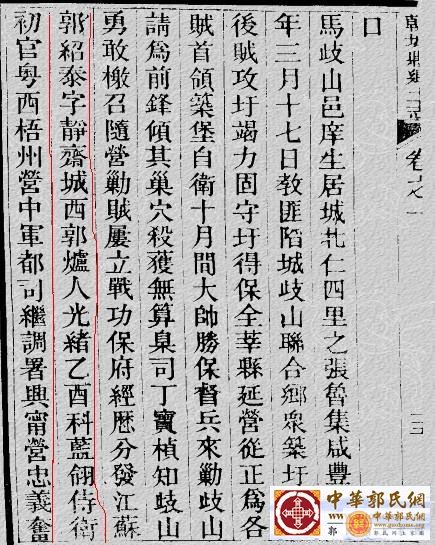 卷之一
口
馬歧山邑庠生居城北仁四里之張魯集咸豐
年三月十七日教匪陷城歧山聯合鄉眾築圩
後賊攻圩竭力固守圩得保全莘縣延營從正為各
賊首領築堡自衛十月間大帥勝保督兵來勦歧山
請為前鋒傾其巢穴殺獲無算臬司丁寶楨知歧山
勇敢檄召隨營勦賊屢立戰功保府經歷分發江蘇
郭紹泰字靜齋城西郭爐人光緒乙酉科藍翎侍衛
初官粵西梧州營中軍都司繼調署興甯營忠義奮
中華郭氏網